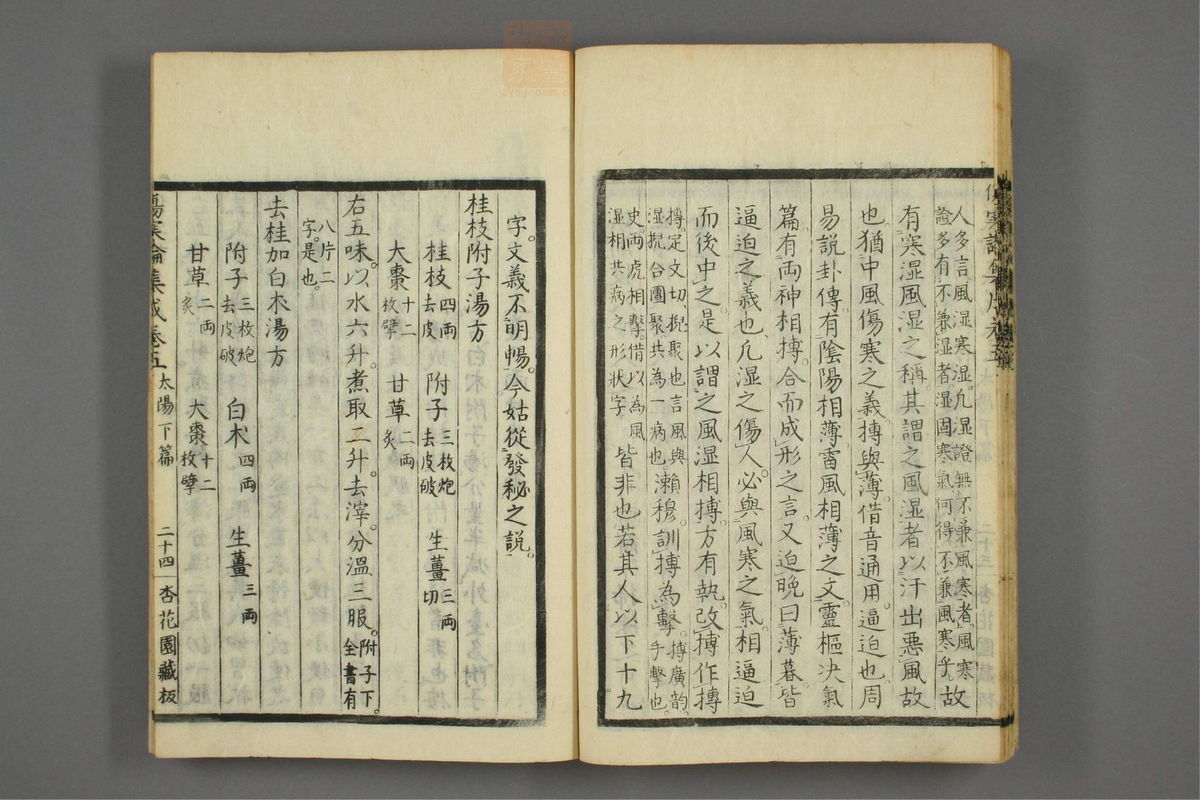 傷寒論集成卷五
人多言風湿寒湿。凡湿證無不兼風寒者。風寒
證多有不兼湿者湿固寒氣何得不兼風寒乎。故
有寒湿風湿之稱。其謂之風湿者以汗出悪風故
也。猶中風傷寒之義。搏與薄。借音通用。逼迫也。周
易説卦傳有陰陽相薄雷風相薄之文。靈樞决氣
篇有両神相搏。合而成形之言。又迫晩曰薄暮。皆
逼迫之義也。凡湿之傷人。必與風寒之氣相逼迫
而後中之。是以謂之風湿相搏。方有執。改搏作摶
摶。定文切。挩聚也言風與
湿挩合團聚共為一病也。瀬穆訓搏為擊。搏廣韵。手擊也。
史両虎相擊。借以為風
湿相共病之形狀字。皆非也。若其人以下十九
字。文義不明暢。今姑從發秘之説。
桂枝附子湯方
桂枝四両去皮 附子三枚炮去皮破 生薑三両切
大棗十二枚擘 甘草二両炙
右五味。以水六升。煮取二升。去滓。分温三服。附子下全書有
八片二字。是也。
去桂加白朮湯方
附子三枚炮去皮破 白朮四両 生薑三両
甘草二両炙 大棗十二枚擘
傷寒論集成卷五 太陽下篇 二十四 杏花園藏板